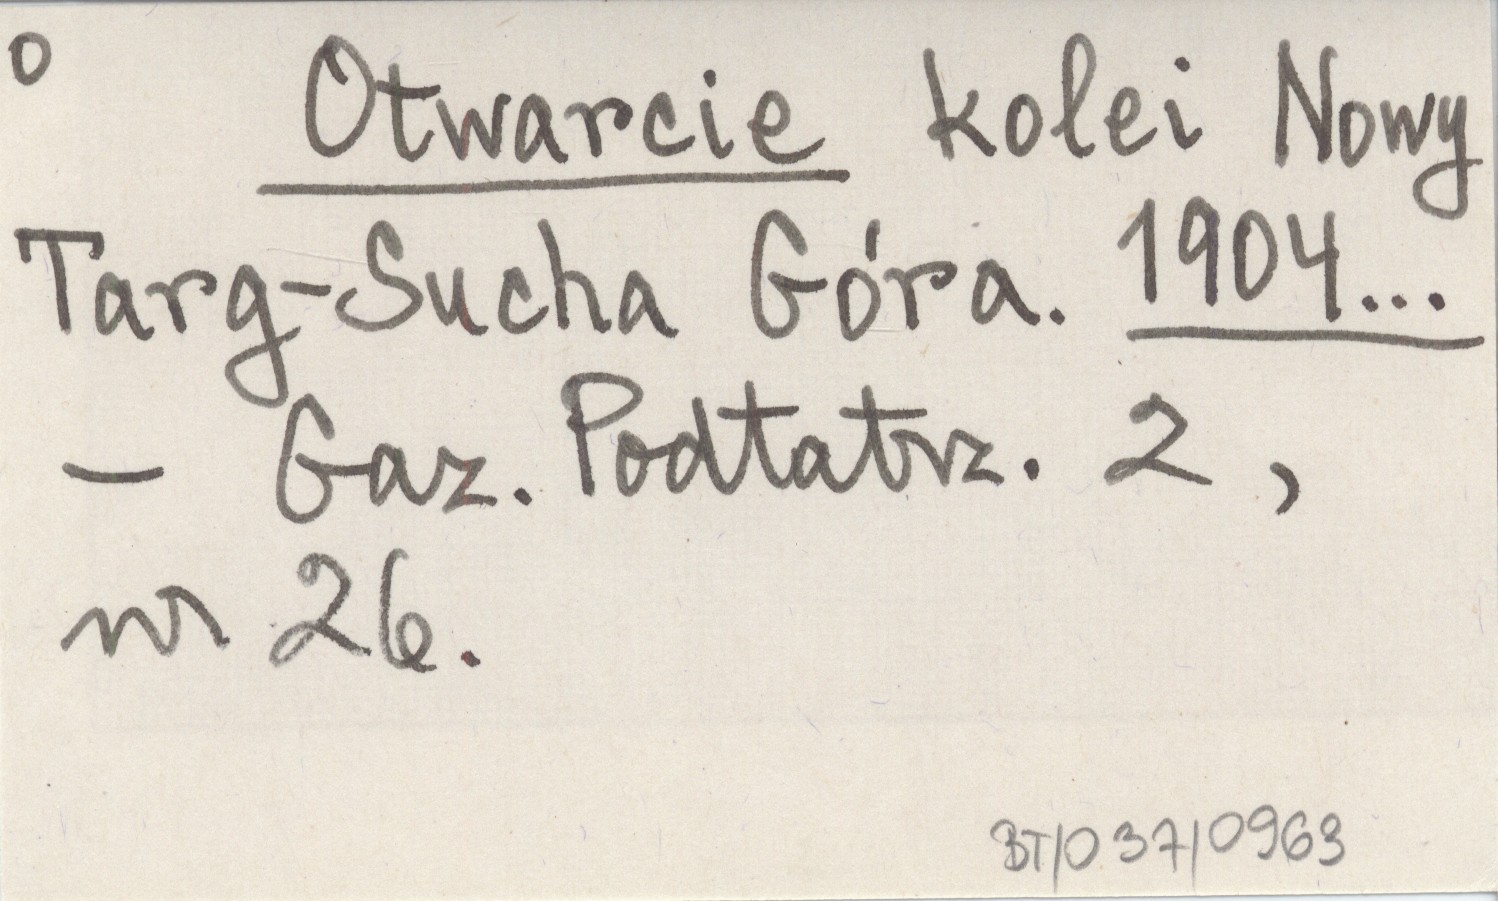 o Otwarcie kolei Nowy
Targ-Sucha Góra. 1904...
- Gaz. Podtatrz. 2,
nr 26.
BT/037/0963